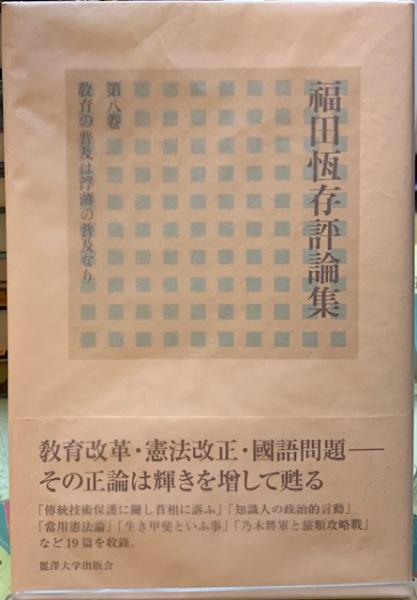 福田恆存評論集
第八卷
教育の普及は浮薄の普及なり
教育改革・憲法改正・國語問題──
その正論は輝きを増して甦る
「傳統技術保護に關し首相に訴ふ」「知識人の政治的言動」
「當用憲法論」「生き甲斐といふ事」「乃木將軍と旅順攻略戰」
など19篇を収錄。
麗澤大学出版会